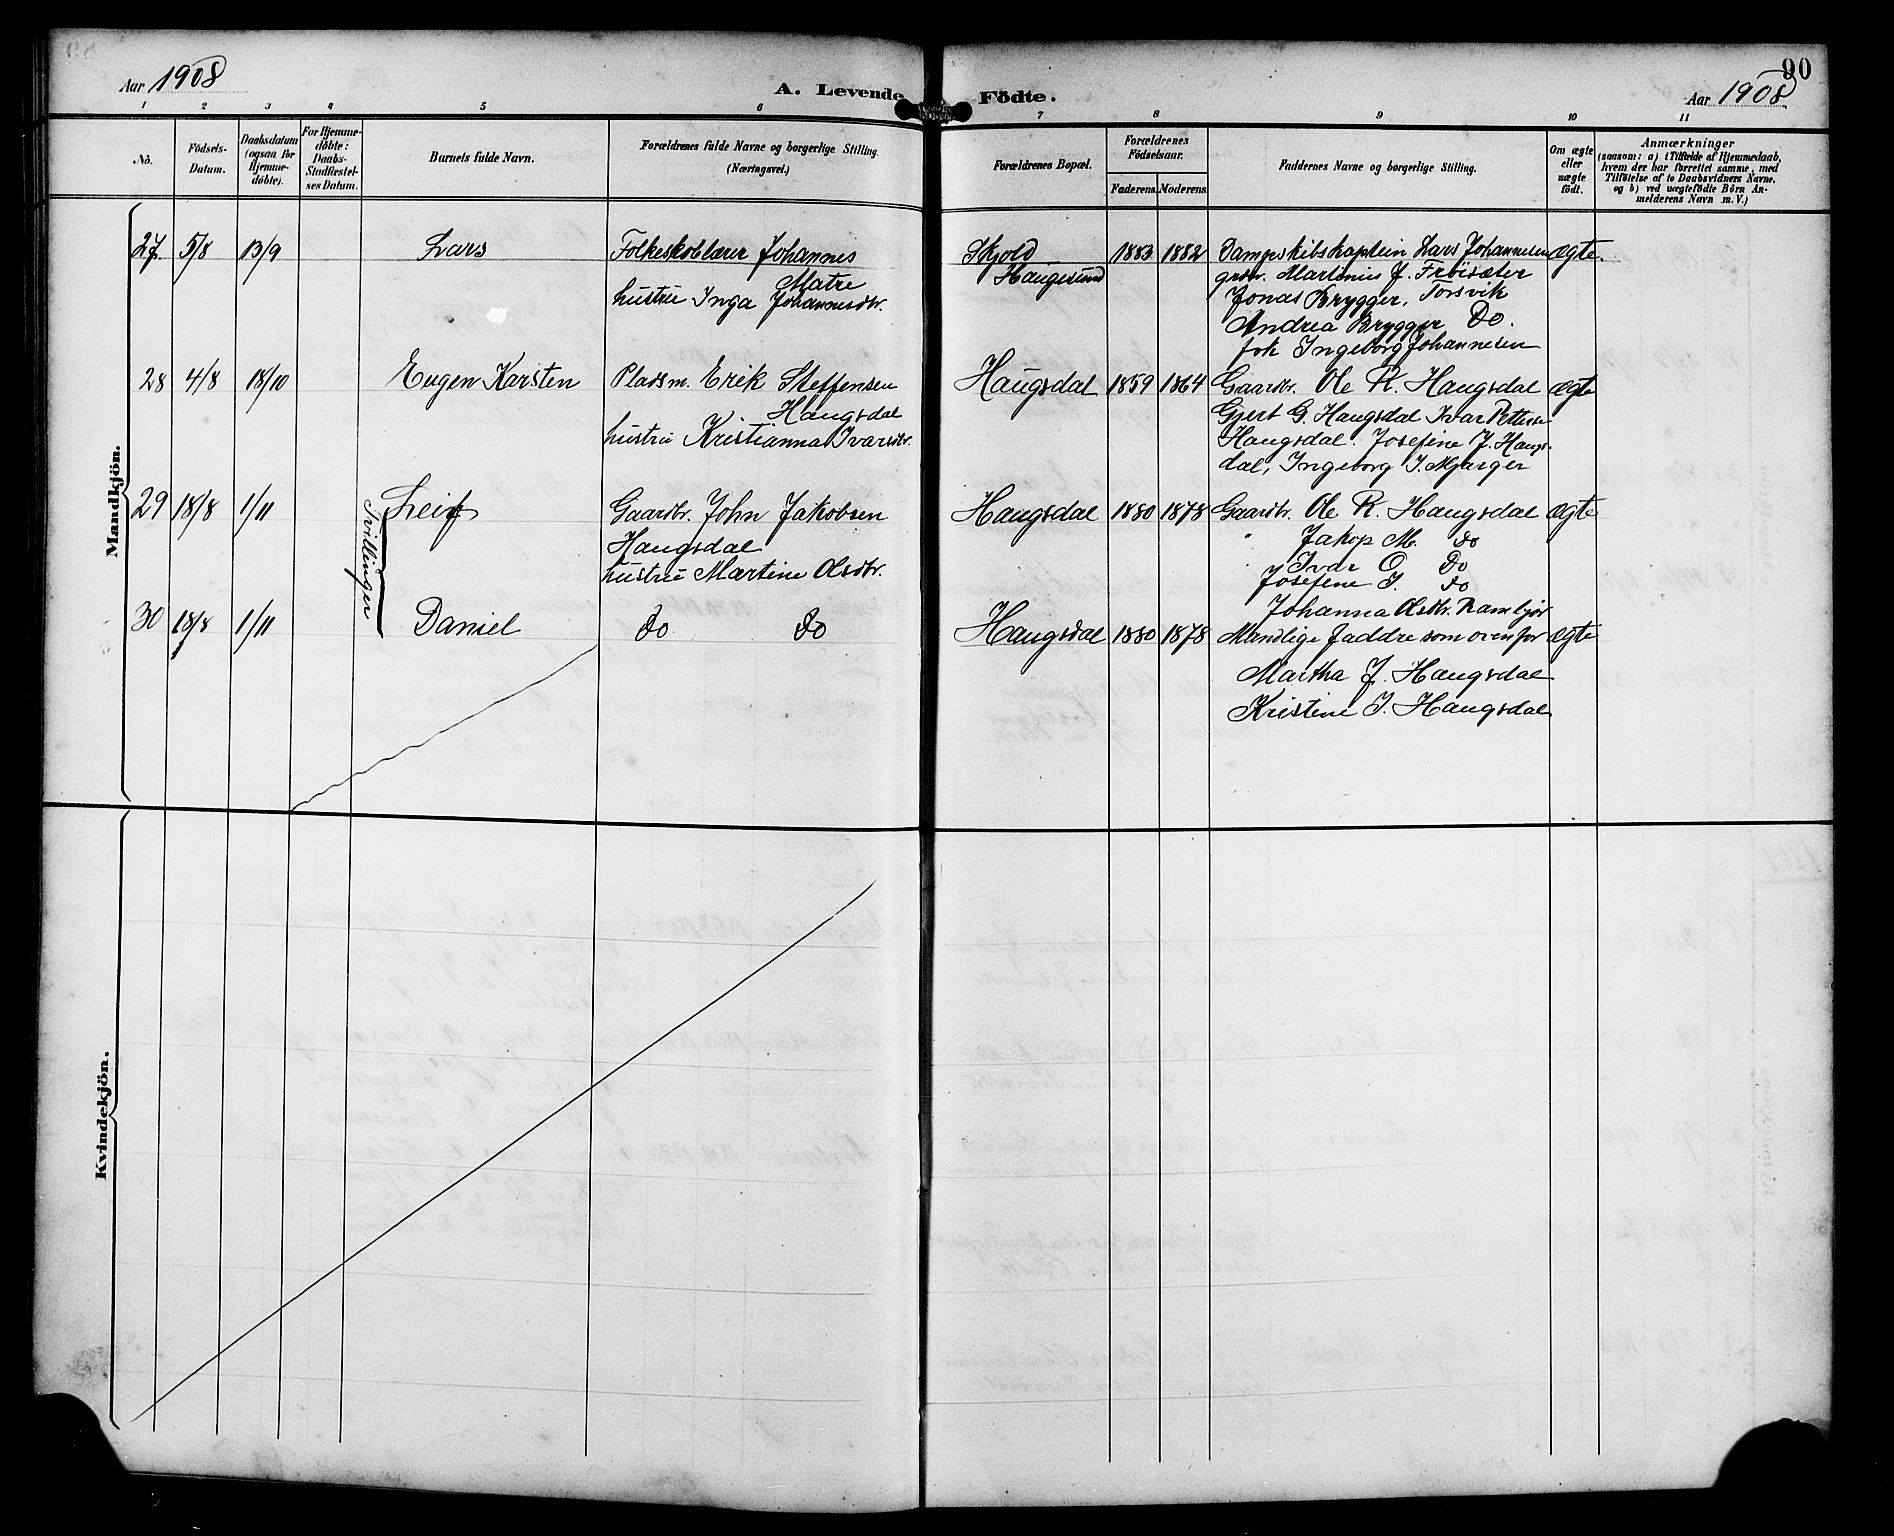 90
Aar 1908
A. Levende Födte.
Aar 1908
1 2 3 4 5 6 7 8 9 10 11
No.
Födsels-
Datum.
Daabsdatum
(ogsaa for
Hjemme-
döbte).
For Hjemme-
döbte:
Daabs-
Stadfæstel-
ses Datum.
Barnets fulde Navn.
Forældrenes fulde Navne og borgerlige Stilling
(Næringsvei.)
Forældrenes Bopæl.
Forældrenes
Födselsaar.
Faderens. Moderens.
Faddernes Navne og borgerlige Stilling.
Om ægte
eller
uægte
födt.
Anmærkninger
(saasom: a) i Tilfælde af Hjemmedaab,
hvem der har forrettet samme, med
Tilföielse af to Daabsvidners Navne,
og b) ved uægtefödte Börn An-
melderens Navn m. V.)
Mandkjön.
27 5/8 13/9 Lars
Folkeskolelærer Johannes
Matre
hustru Inga Johannesdtr.
Skjold
Haugesund
1883 1882
Dampskibskaptein Lars Johannesen
grbr. Martinus J. Fröisæter
Jonas Brygger, Torsvik
Andrea Brygger Do.
frk Ingeborg Johannesen
ægte.
28 4/8 18/10 Eugen Karsten
Pladsm. Erik Steffensen
Haugsdal
hustru Kristianna Ivarsdtr.
Haugsdal 1859 1864
Gaardbr. Ole R. Haugsdal
Gjert G. Haugsdal Ivar Petterse
Haugsdal. Josefine J. Haugs-
dal, Ingeborg I. Mjanger
ægte
29 18/8 1/11 Leif
Tvillinger
Gaardbr. John Jakobsen
Haugsdal
hustru Martine Olsdtr.
Haugsdal 1880 1878
Gaardbr. Ole R. Haugsdal
" Jakop M. do
" Ivar O. Do
Josefine I. do
Johanna Olsdtr. Rambjör
ægte
30 18/8 1/11 Daniel
do do
Haugsdal 1880 1878
Mandlige faddre som ovenfor
Martha J. Haugsdal
Kristine I. Haugsdal
ægte
Kvindekjön.